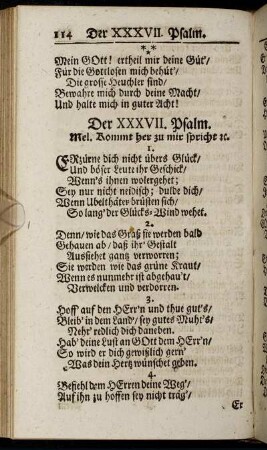 114 Der XXXVII. Psalm.
* * *
Mein GOtt! ertheil mir deine Güt'/
Für die Gottlosen mich behüt'/
Die grosse Heuchler sind/
Bewahre mich durch deine Macht/
Und halte mich in guter Acht!
Der XXXVII. Psalm.
Mel. Kommt her zu mir spricht ꝛc.
1.
ERzürne dich nicht übers Glück/
Und böser Leute ihr Geschick/
Wenn's ihnen wolergehet;
Sey nur nicht neidisch; dulde dich/
Wenn Ubelthäter brüsten sich/
So lang' der Glücks-Wind wehet.
2.
Denn/ wie das Graß sie werden bald
Gehauen ab/ daß ihr' Gestalt
Aussiehet gantz verworren;
Sie werden wie das grüne Kraut/
Wenn es nunmehr ist abgehau't/
Verwelcken und verdorren.
3.
Hoff' auf den HErr'n und thue gut's/
Bleib' in dem Land'/ sey gutes Muht's/
Nehr' redlich dich daneben.
Hab' deine Lust an GOtt dem HErr'n/
So wird er dich gewißlich gern'
Was dein Hertz wünschet geben.
4.
Befiehl dem HErren deine Weg'/
Auf ihn zu hoffen sey nicht träg'/
Er